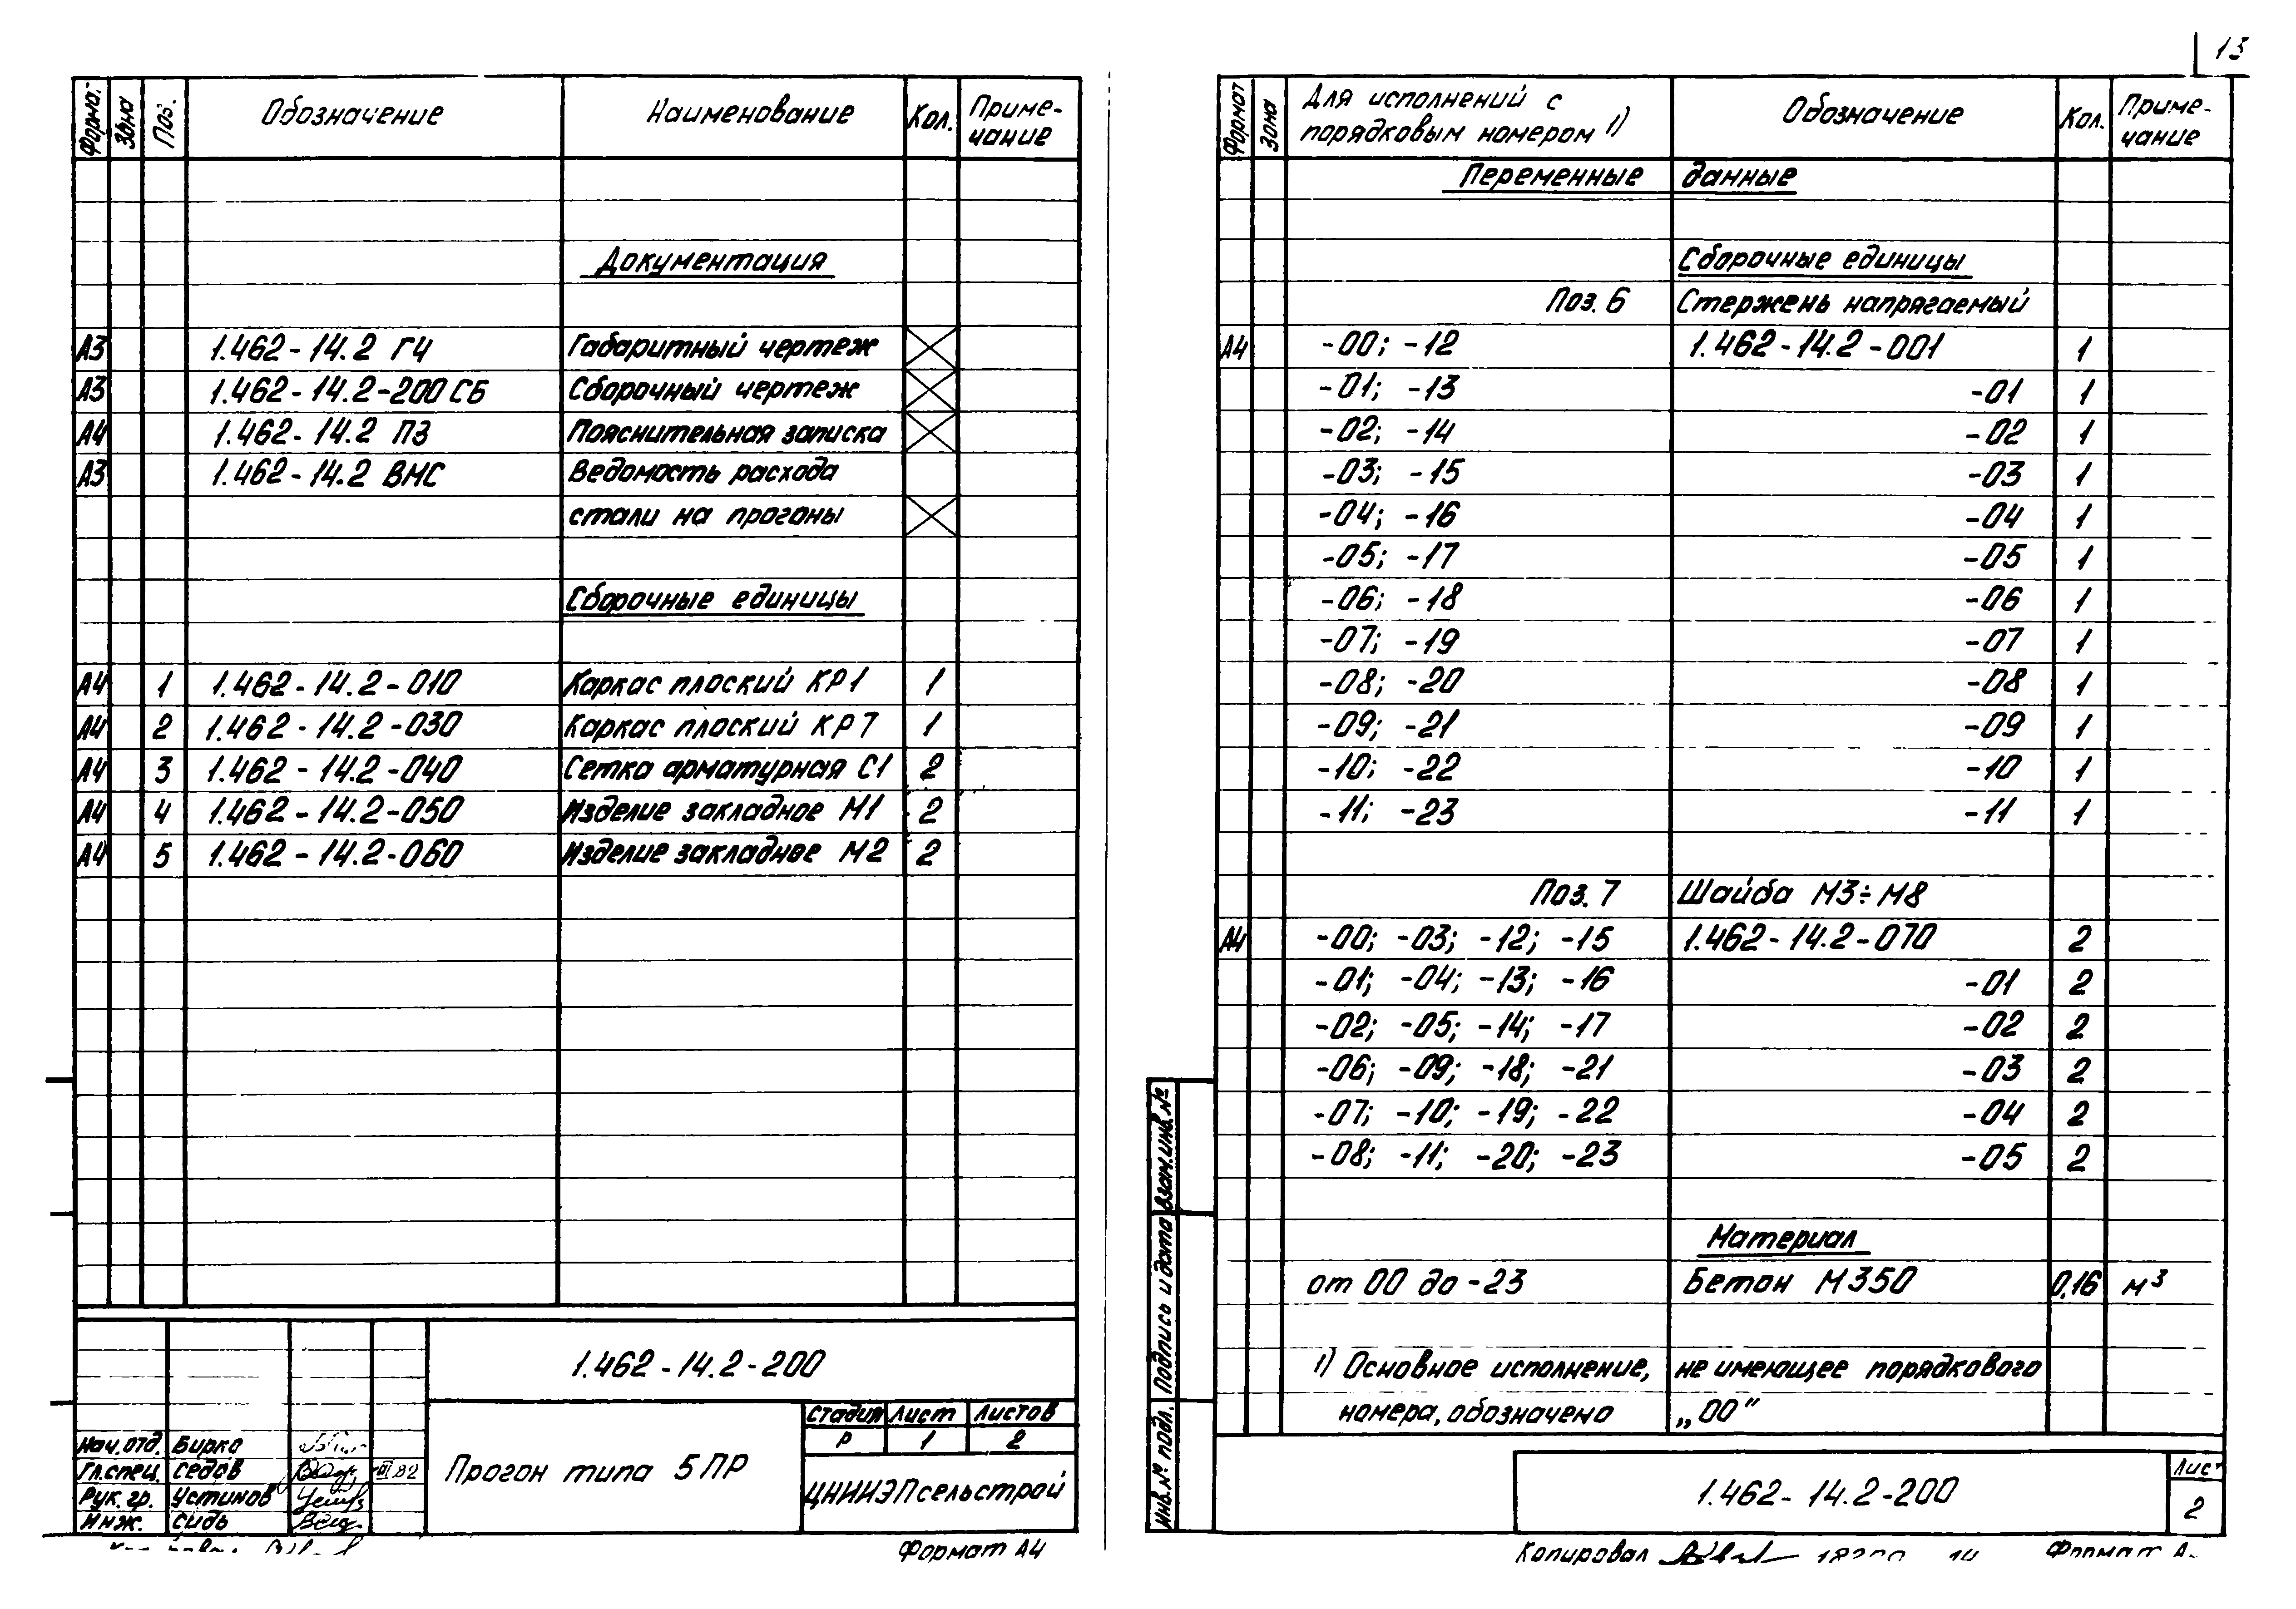 13
Формат Зона Поз. Обозначение Наименование Кол. Приме-
чание
Документация
А3 1.462-14.2 ГЧ Габаритный чертеж
А3 1.462-14.2-200 СБ Сборочный чертеж
А4 1.462-14.2 ПЗ Пояснительная записка
А3 1.462-14.2 ВМС Ведомость расхода
стали на прогоны
Сборочные единицы
А4 1 1.462-14.2-010 Каркас плоский КР1 1
А4 2 1.462-14.2-030 Каркас плоский КР7 1
А4 3 1.462-14.2-040 Сетка арматурная С1 2
А4 4 1.462-14.2-050 Изделие закладное М1 2
А4 5 1.462-14.2-060 Изделие закладное М2 2
1.462-14.2-200
Стадия Лист Листов
Р 1 2
Прогон типа 5ПР
ЦНИИЭПсельстрой
Нач.отд. Бирко
Гл.спец. Седов III 82
Рук.гр. Устинов
Инж. Сидь
Формат А4
Формат Зона Для исполнений с
порядковым номером 1) Обозначение Кол. Приме-
чание
Переменные данные
Сборочные единицы
Поз. 6 Стержень напрягаемый
А4 -00; -12 1.462-14.2-001 1
-01; -13 -01 1
-02; -14 -02 1
-03; -15 -03 1
-04; -16 -04 1
-05; -17 -05 1
-06; -18 -06 1
-07; -19 -07 1
-08; -20 -08 1
-09; -21 -09 1
-10; -22 -10 1
-11; -23 -11 1
Поз. 7 Шайба М3÷М8
А4 -00; -03; -12; -15 1.462-14.2-070 2
-01; -04; -13; -16 -01 2
-02; -05; -14; -17 -02 2
-06; -09; -18; -21 -03 2
-07; -10; -19; -22 -04 2
-08; -11; -20; -23 -05 2
Материал
от 00 до -23 Бетон М350 0,16 м³
1) Основное исполнение, не имеющее порядкового
номера, обозначено „00"
Взам.инв.№
Подпись и дата
Инв.№ подл.
1.462-14.2-200
Лист
2
Копировал
Формат А